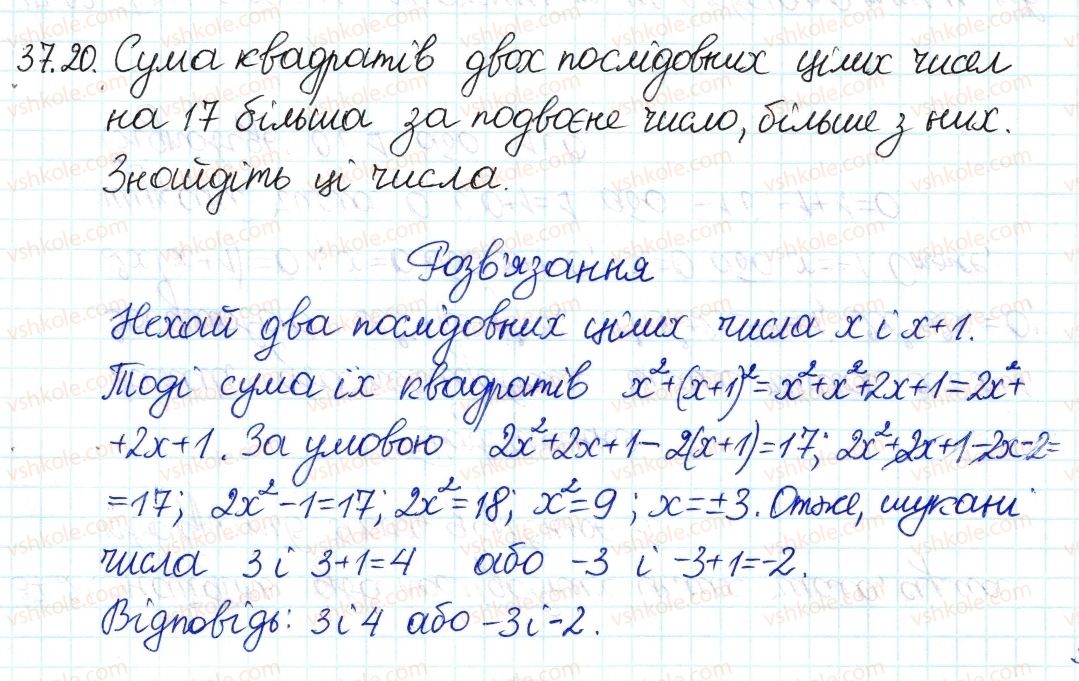 37.20. Сума квадратів двох послідовних цілих чисел
на 17 більша за подвоєне число, більше з них.
Знайдіть ці числа.
Розв'язання
Нехай два послідовних цілих числа x і x+1.
Тоді сума їх квадратів x²+(x+1)²=x²+x²+2x+1=2x²+
+2x+1. За умовою 2x²+2x+1-2(x+1)=17; 2x²+2x+1-2x-2=
=17; 2x²-1=17; 2x²=18; x²=9; x=±3. Отже, шукані
числа 3 і 3+1=4 або -3 і -3+1=-2.
Відповідь: 3 і 4 або -3 і -2.